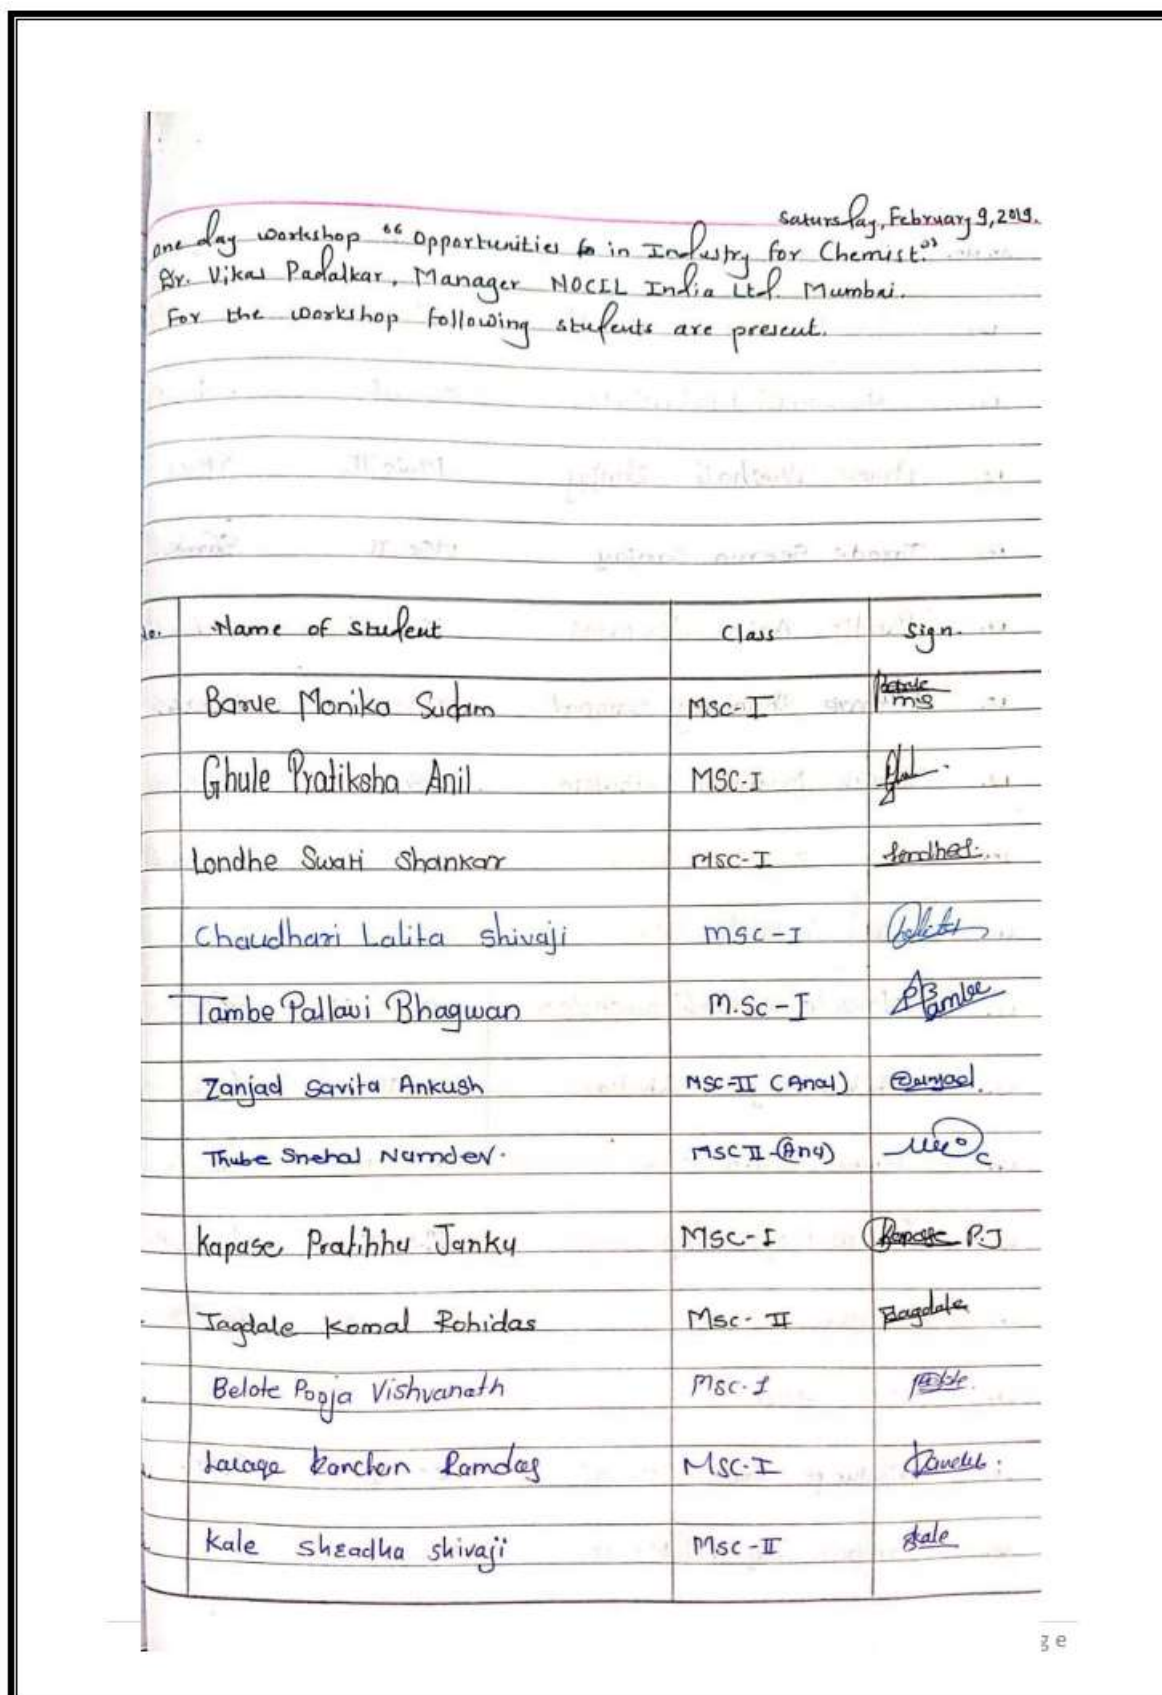 Saturday, February 9, 2019.
One day workshop "Opportunities in Industry for Chemist."
Dr. Vikas Padalkar, Manager NOCIL India Ltd. Mumbai.
For the workshop following students are present.
No. Name of Student Class Sign.
Barve Monika Sudam MSC-I Barve M.S
Ghule Pratiksha Anil MSC-I
Londhe Swati Shankar MSC-I Londhe S.
Chaudhari Lalita Shivaji MSC-I Lalita
Tambe Pallavi Bhagwan M.Sc-I PBTambe
Zanjad Savita Ankush MSC-II (Anal) Zanjad
Thube Snehal Namdev. MSC II-(Any)
Kapase Pratibha Janku MSC-I Kapase P.J
Jagdale Komal Rohidas Msc-II Jagdale
Belote Pooja Vishvanath MSC-I
Kanchan Ramdas MSC-I
Kale Shradha Shivaji MSC-II Kale
g e